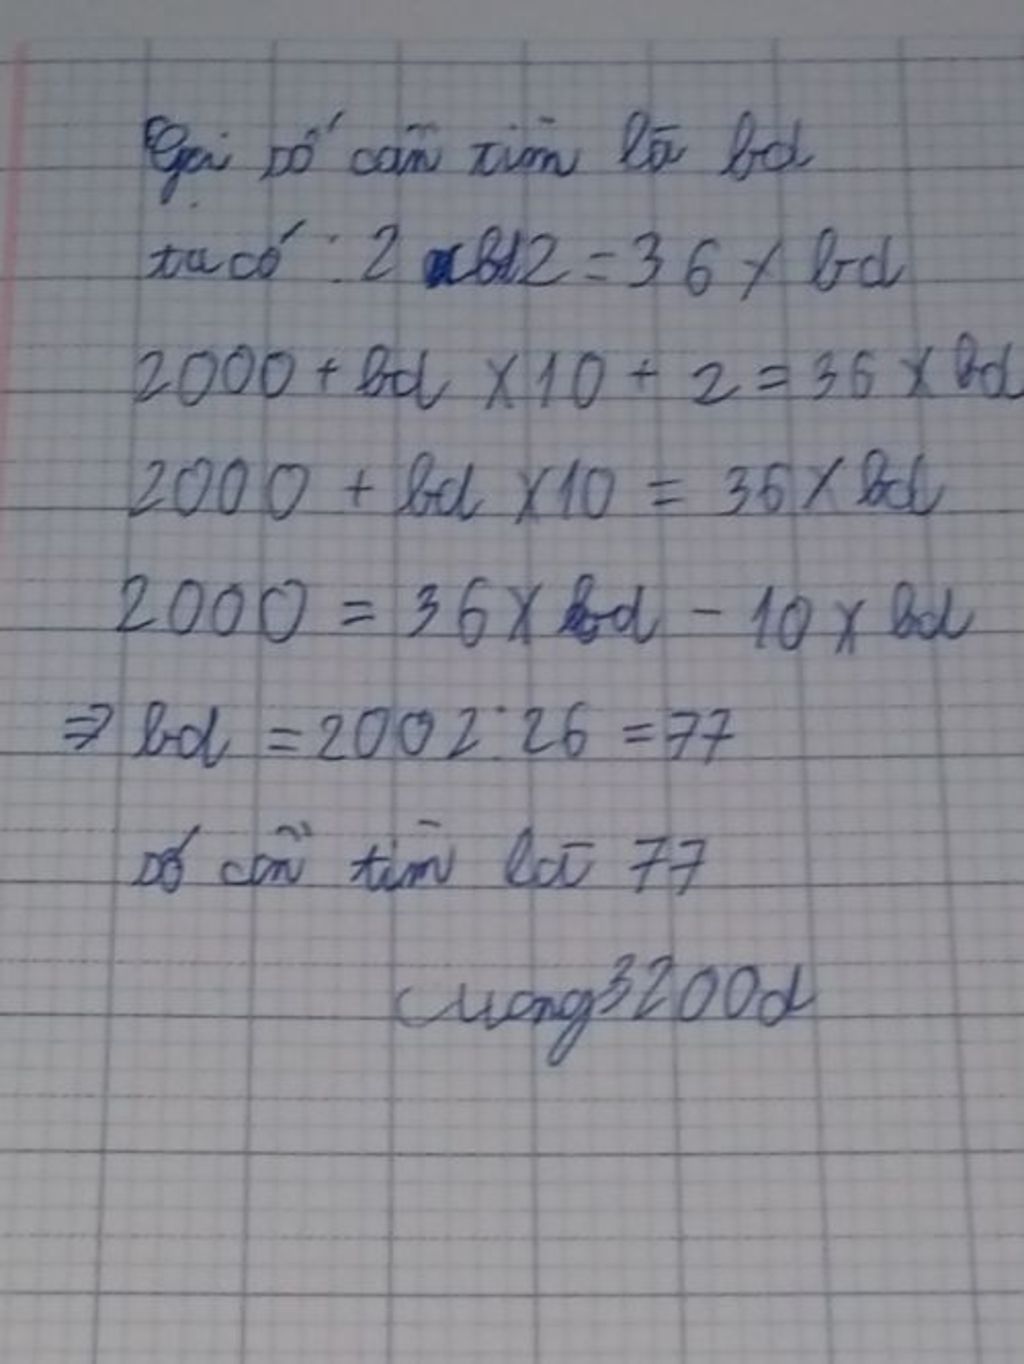 Gọi số cần tìm là bd
ta có : 2 bd2 = 36 x bd
2000 + bd x 10 + 2 = 36 x bd
2000 + bd x 10 = 36 x bd
2000 = 36 x bd - 10 x bd
⇒ bd = 2002 : 26 = 77
số cần tìm là 77
cuong3200d